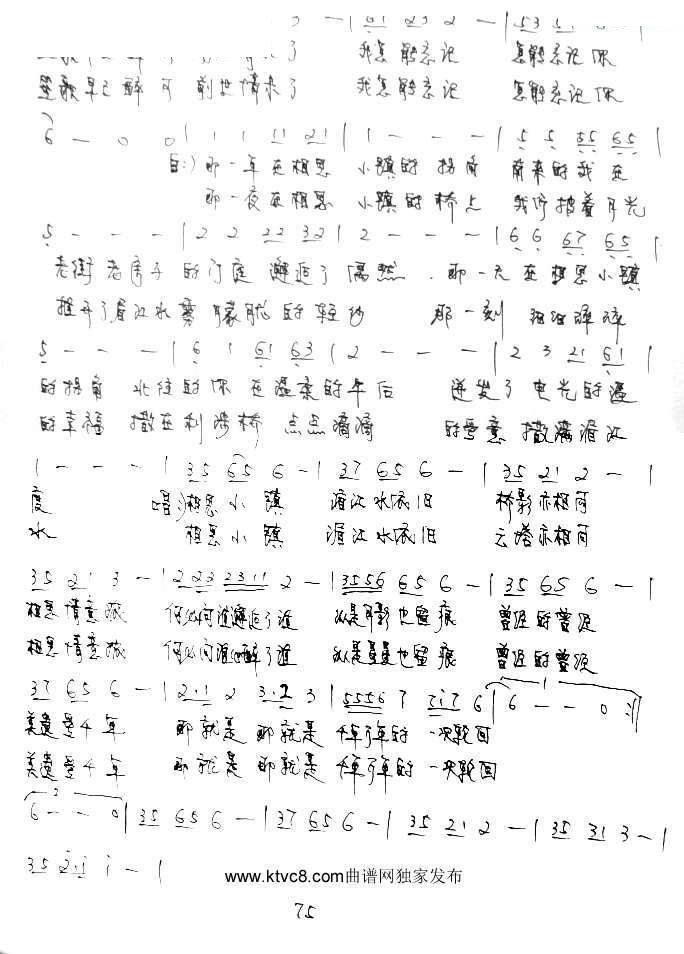 3 - | 61 23 2 - | 53 51
了 我怎能忘记 怎能忘记你
早已醉 可 前世情未了 我怎能忘记 怎能忘记你
6 - 0 0 | 1 1 11 21 | 1 - - - | 5 5 55 65 |
白:) 那一年在相思 小镇的拐角 南来的我在
那一夜在相思 小镇的桥上 我们披着月光
5 - - - | 2 2 22 32 | 2 - - - | 6 6 67 65 |
老街老房子的门庭 邂逅了偶然. 那一天在相思小镇
推开了湄江水雾朦胧的轻纱 那一刻
5 - - - | 6 1 61 63 | 2 - - - | 2 3 21 61 |
的拐角 北往的你在温柔的午后 迸发了电光的温
的幸福 撒在利涉桥 点点滴滴 的雪意 撒满湄江
1 - - - | 35 65 6 - | 37 65 6 - | 35 21 2 - |
度 唱:)相思小镇 湄江水依旧 桥影亦相问
水 相思小镇 湄江水依旧 云塔亦相问
35 21 3 - | 222 2311 2 - | 3556 65 6 - | 35 65 6 - |
相思情意浓 何以问谁邂逅了谁 也留痕 曾经的曾经
相思情意浓 何以问谁醉了谁 也留痕 曾经的曾经
37 65 6 - | 2·1 2 3·2 3 | 5556 7 7i7 6 | 6 - - 0 :||
美遗是千年 那就是 那就是 千年千年的 一次轮回
美遗是千年 那就是 那就是 千年千年的 一次轮回
6 - - 0 | 35 65 6 - | 37 65 6 - | 35 21 2 - | 35 31 3 - |
35 2·i i - |
www.ktvc8.com曲谱网独家发布
75